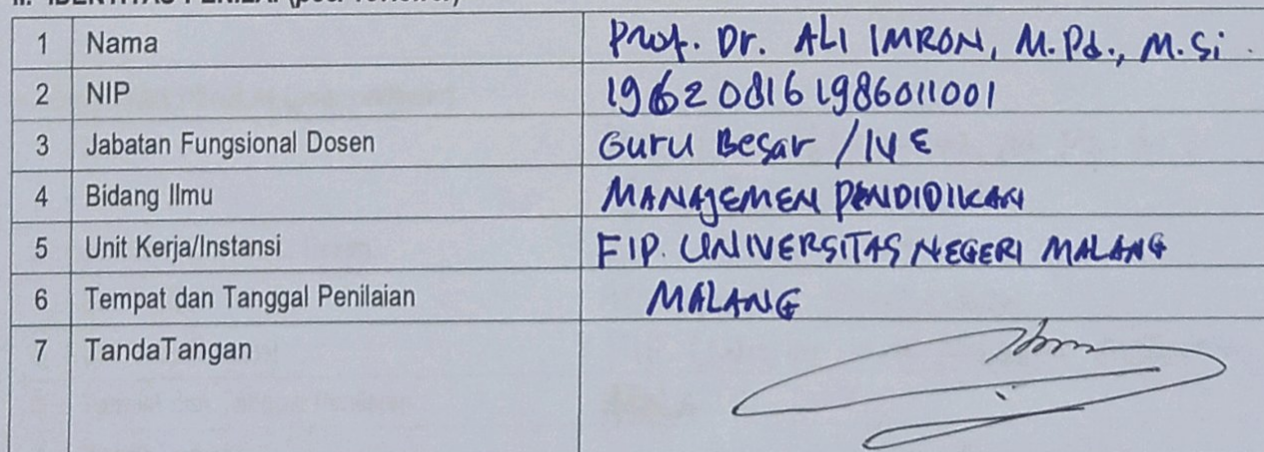 II. IDENTITAS PENILAI (peer reviewer)
1 Nama Prof. Dr. ALI IMRON, M.Pd., M.Si.
2 NIP 196208161986011001
3 Jabatan Fungsional Dosen Guru Besar / IV E
4 Bidang Ilmu MANAJEMEN PENDIDIKAN
5 Unit Kerja/Instansi FIP. UNIVERSITAS NEGERI MALANG
6 Tempat dan Tanggal Penilaian MALANG
7 TandaTangan